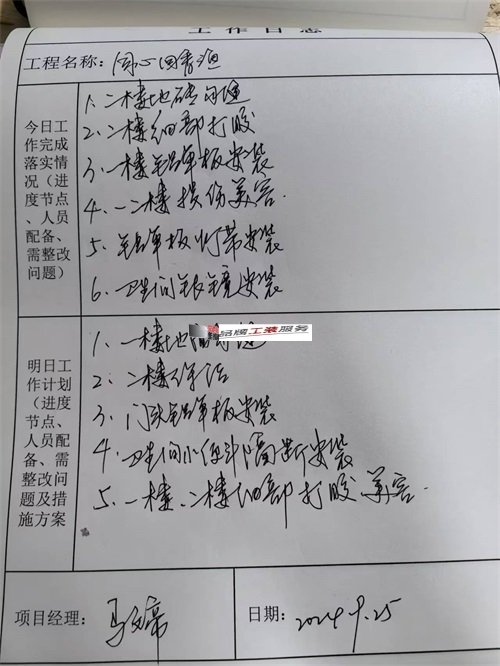 工作日志
工程名称：同心回香酒
今日工作完成落实情况（进度节点、人员配备、需整改问题）
1. 二楼地砖勾缝
2. 二楼细部打胶
3. 一楼铝单板安装
4. 一二楼损伤美容.
5. 铝单板灯带安装
6. 卫生间银镜安装
品牌工装服务
明日工作计划（进度节点、人员配备、需整改问题及措施方案
1. 一楼地
2. 二楼保洁
3. 门头铝单板安装
4. 卫生间小便斗隔断安装
5. 一楼、二楼细部打胶美容.
项目经理：
日期：2024.9.25